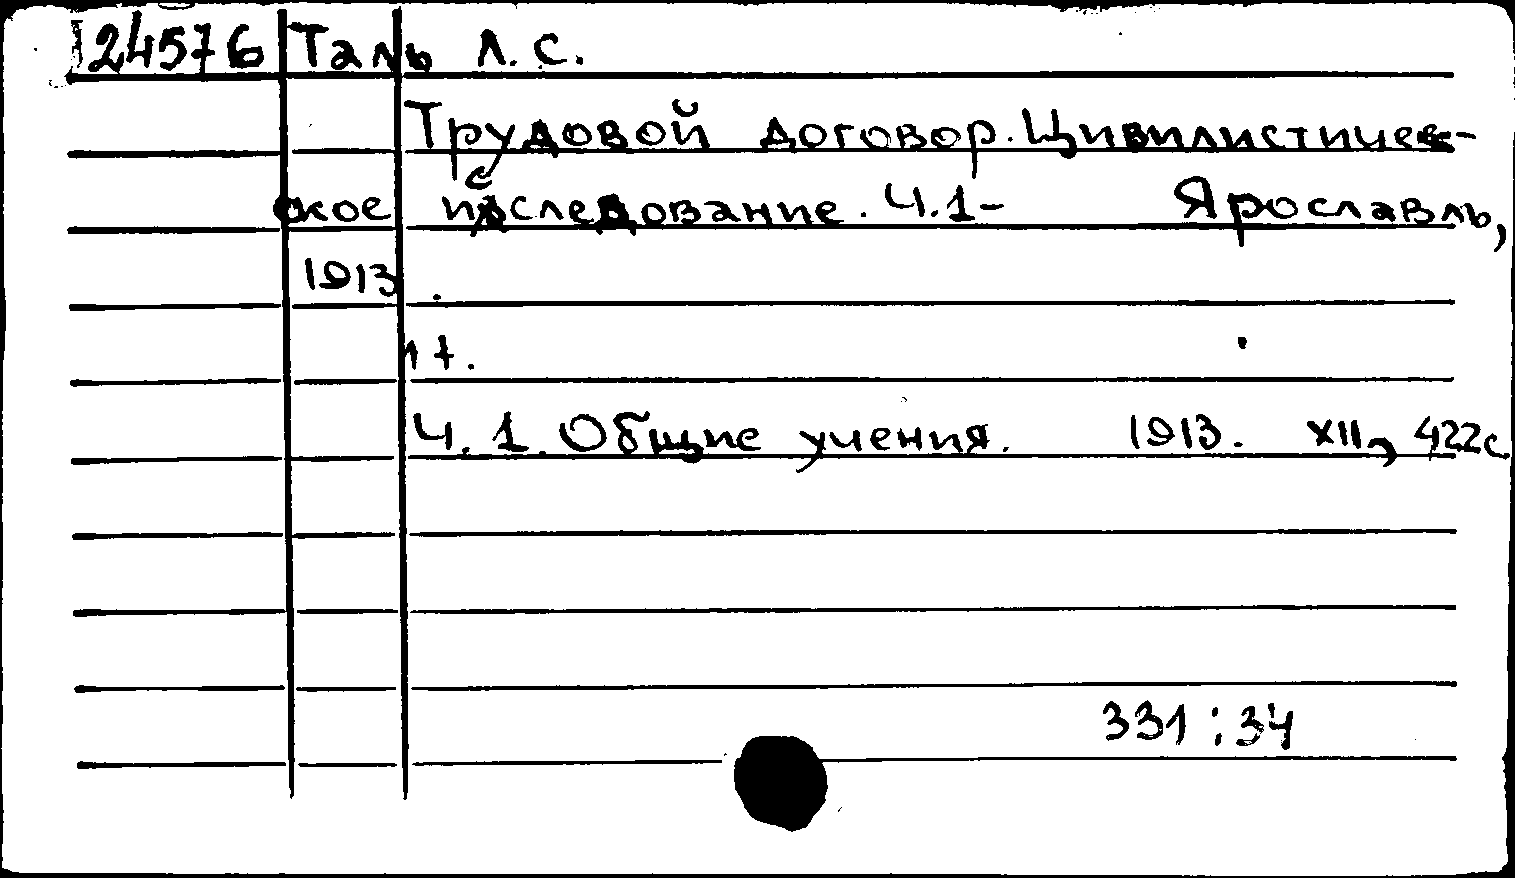 24576 Таль Л. С.
Трудовой договор. Цивилистичес-
кое исследование. Ч.1- Ярославль,
1913.
1 т.
Ч. 1. Общие учения. 1913. XII, 422с.
331 : 34